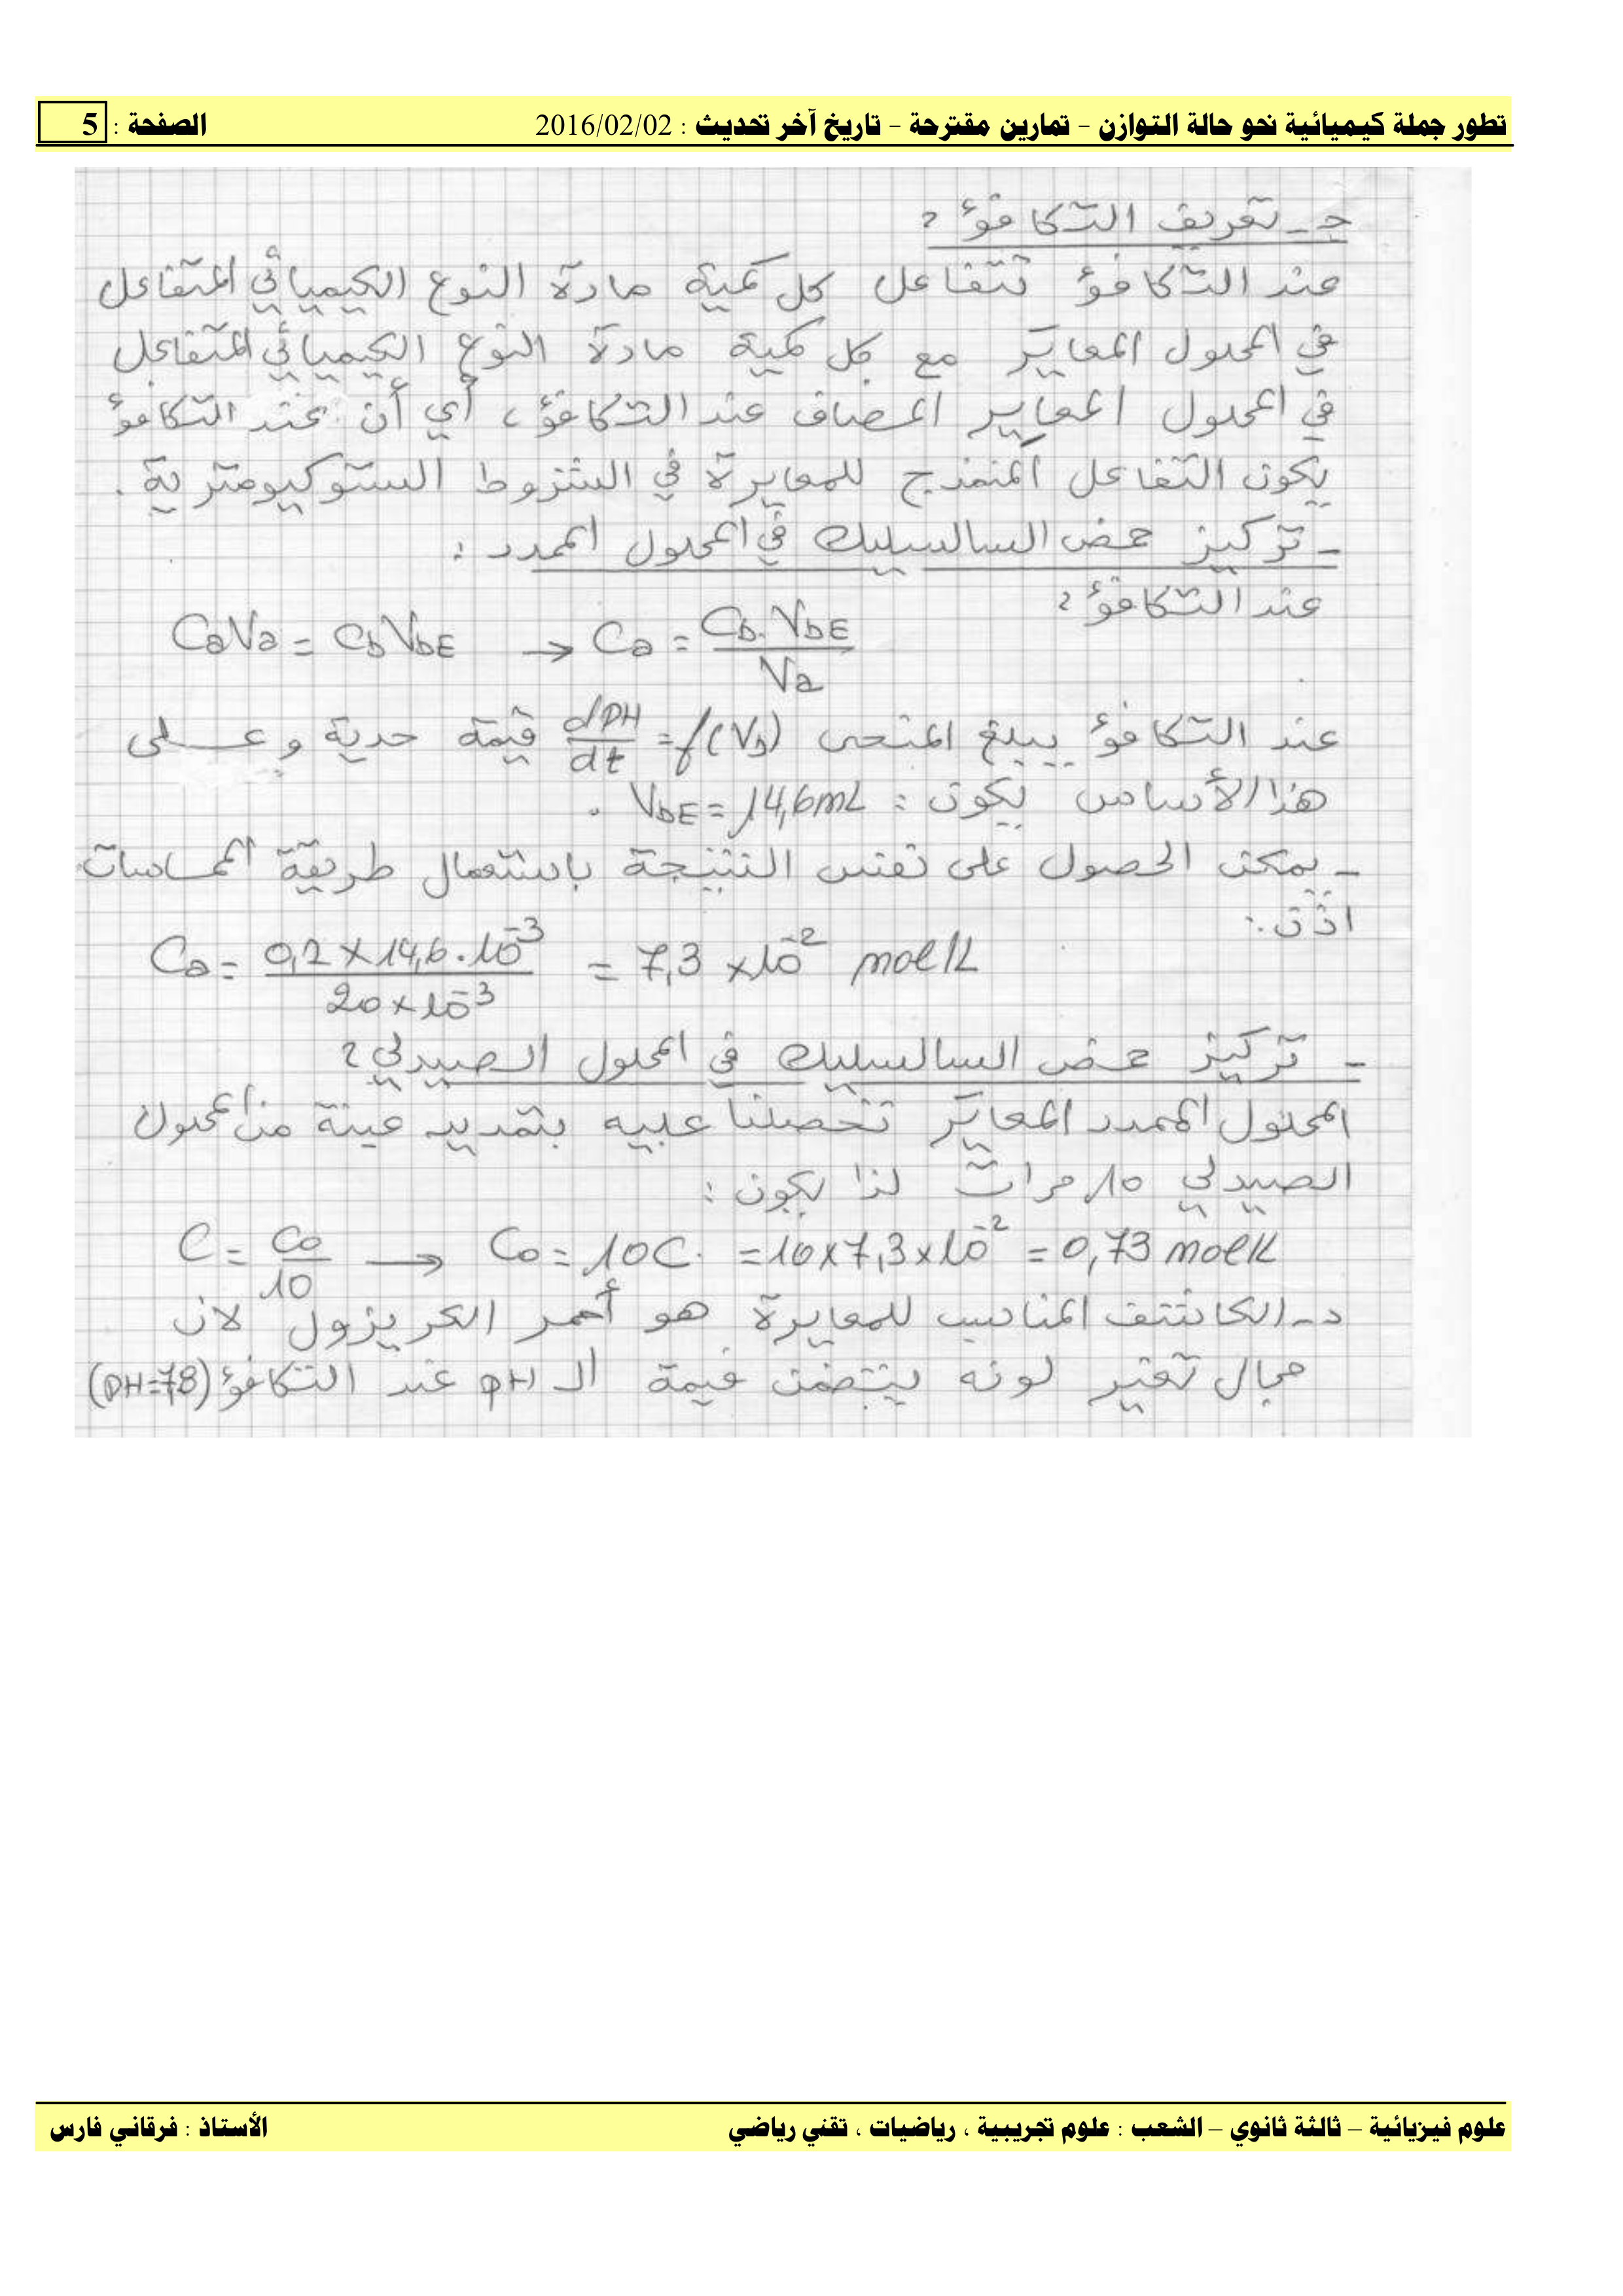 تطور جملة كيميائية نحو حالة التوازن – تمارين مقترحة – تاريخ آخر تحديث : 2016/02/02 الصفحة : 5
جـ - تعريف التكافؤ :
عند التكافؤ تتفاعل كل كمية مادة النوع الكيميائي المتفاعل
في المحلول المعايَر مع كل كمية مادة النوع الكيميائي المتفاعل
في المحلول المعايِر المضاف عند التكافؤ، أي أن عند التكافؤ
يكون التفاعل المنمذج للمعايرة في الشروط الستوكيومترية .
- تركيز حمض الساليسليك في المحلول الممدد :
عند التكافؤ :
CaVa = CbVbE → Ca = Cb.VbE / Va
عند التكافؤ يبلغ المنحى dpH/dt = f(Vb) قيمة حدية و على
هذا الأساس يكون : VbE = 14,6mL .
- يمكن الحصول على نفس النتيجة باستعمال طريقة المماسات.
اذن :
Ca = 0,2 × 14,6.10⁻³ / 20×10⁻³ = 7,3 ×10⁻² mol/L
- تركيز حمض الساليسليك في المحلول الصيدلي :
المحلول الممدد المعايَر تحصلنا عليه بتمديد عينة من المحلول
الصيدلي 10 مرات لذا يكون :
C = Co/10 → Co = 10C = 10×7,3×10⁻² = 0,73 mol/L
د - الكاشف المناسب للمعايرة هو أحمر الكريزول لان
مجال تغير لونه يتضمن قيمة الـ pH عند التكافؤ (pH=78)
علوم فيزيائية – ثالثة ثانوي – الشعب : علوم تجريبية ، رياضيات ، تقني رياضي الأستاذ : فرقاني فارس